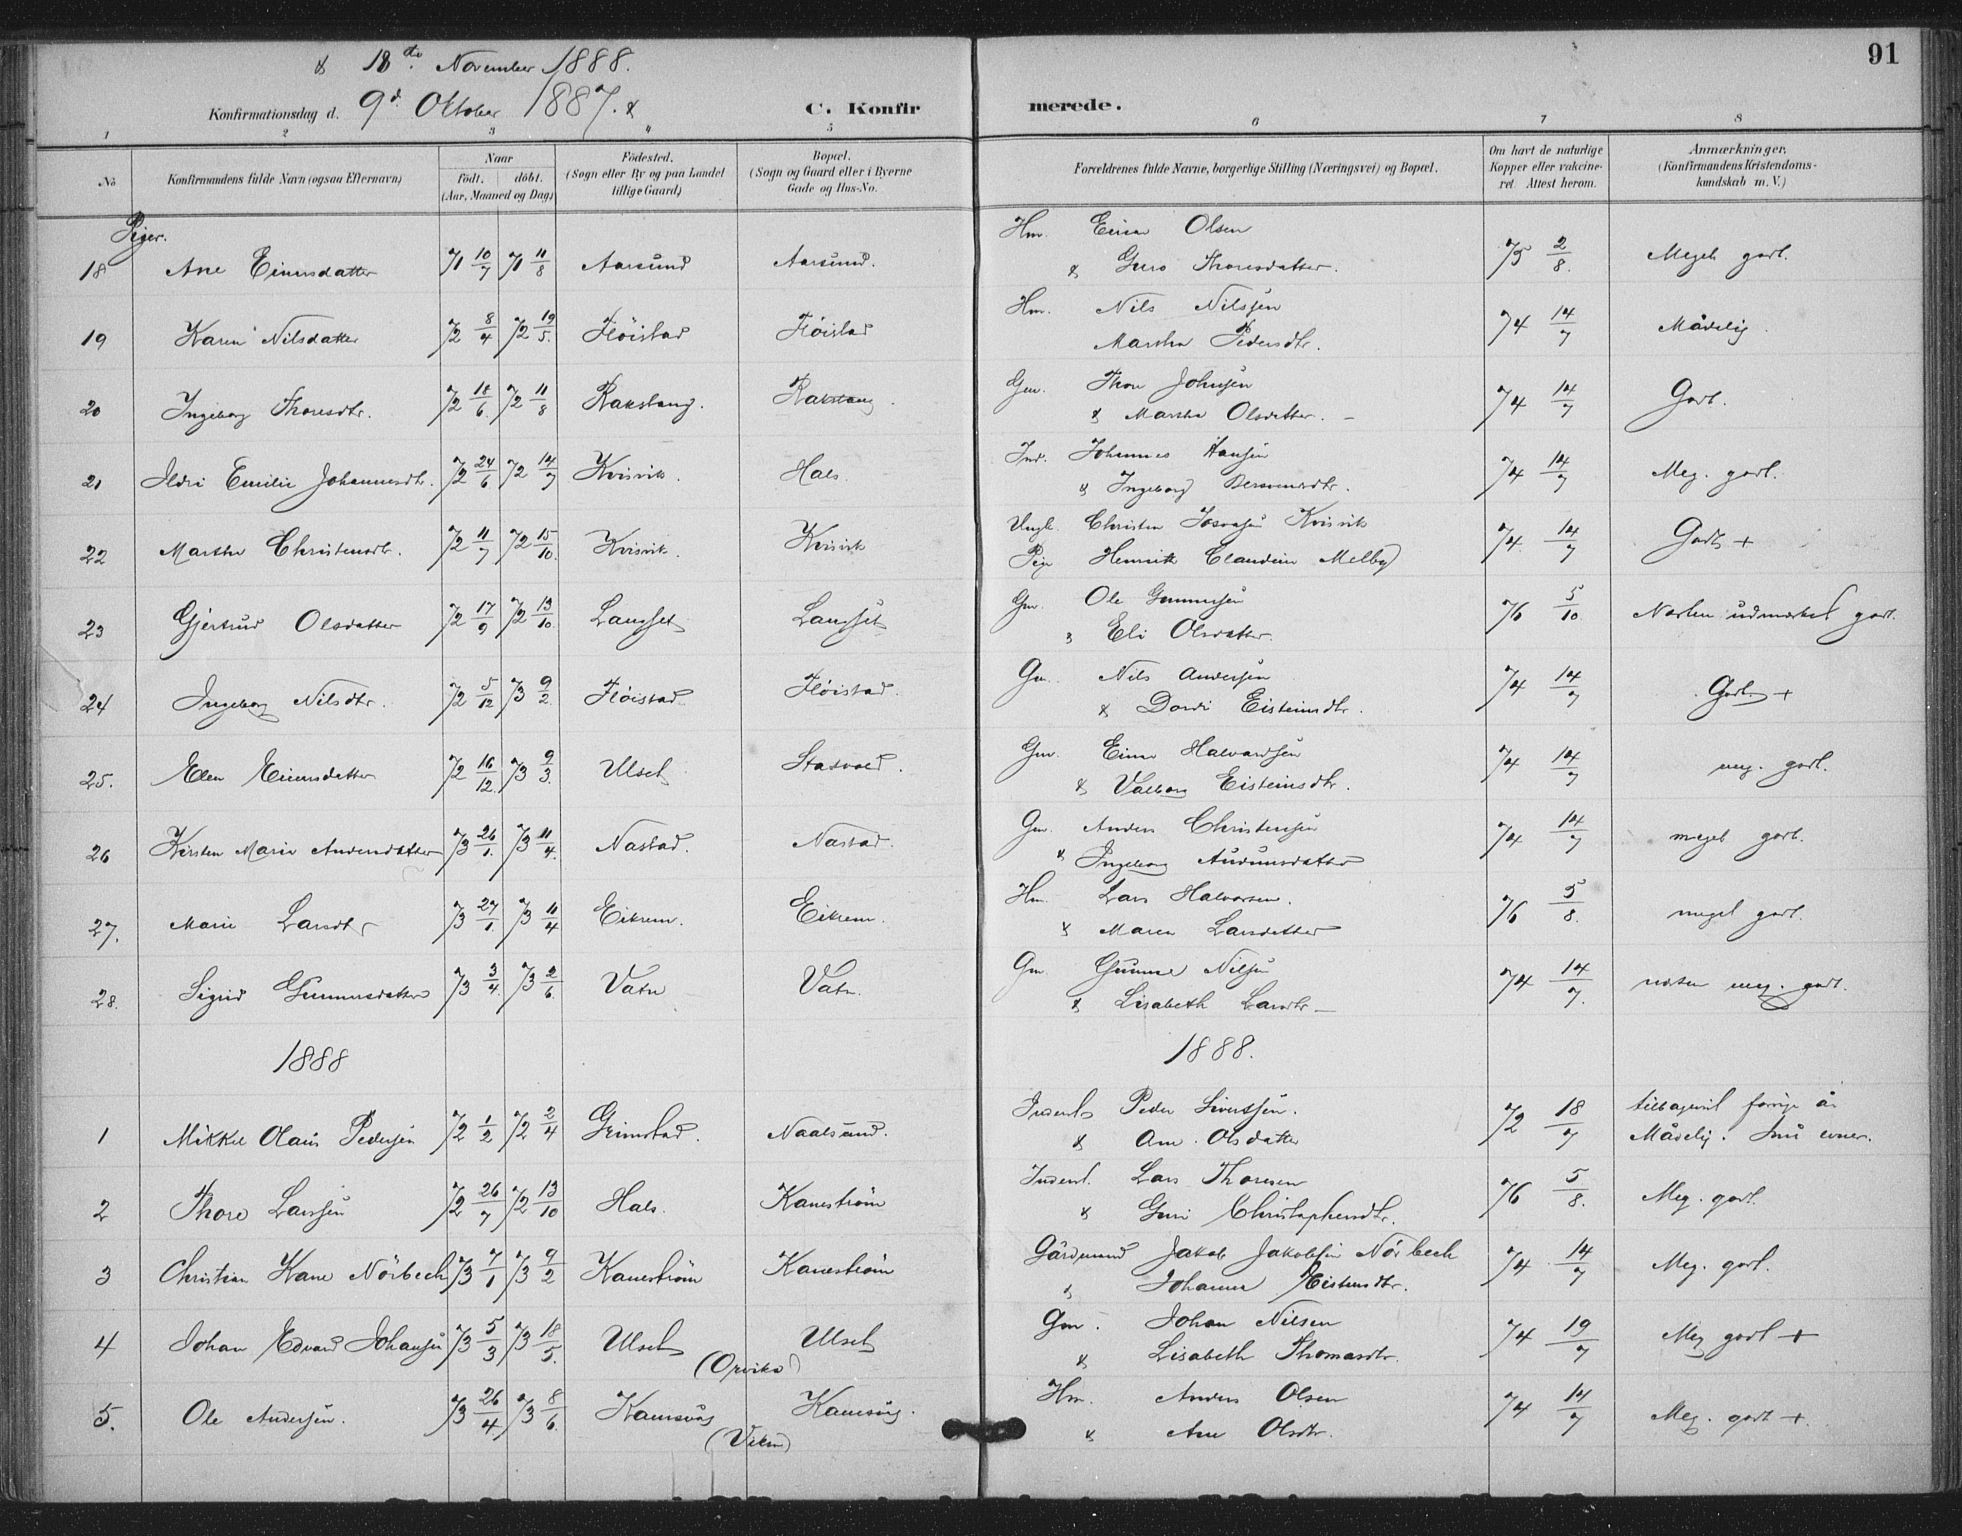 & 18de November 1888.
Konfirmationsdag d. 9d Oktober 1887. &
C. Konfirmerede.
91
1 2 3 4 5 6 7 8
No
Konfirmandens fulde Navn (ogsaa Efternavn)
Naar
födt. döbt.
(Aar, Maaned og Dag)
Födested.
(Sogn eller By og paa Landet
tillige Gaard)
Bopæl.
(Sogn og Gaard eller i Byerne
Gade og Hus-No.
Forældrenes fulde Navne, borgerlige Stilling (Næringsvei) og Bopæl.
Om havt de naturlige
Kopper eller vakcine-
ret Attest herom.
Anmærkninger.
(Konfirmandens Kristendoms-
kundskab m. V.)
Piger.
18 Ane Einersdatter 71 10/7 71 11/8 Aarsund Aarsund. Hm. Einar Olsen
& Guro Thoresdatter. 75 2/8. Meget godt.
19 Karen Nilsdatter 72 8/4 72 19/5. Flöistad Flöistad Hm. Nils Nilssen
Martha Pedersdtr. 74 14/7 Mådelig.
20 Ingeborg Thoresdtr. 72 18/6. 72 11/8 Rakstang. Rakstang. Gm. Thore Johnsen
& Martha Olsdatter. 74 14/7 Godt.
21 Ildri Emilie Johannesdtr. 72 24/6 72 14/7 Kvisvik. Hals. Ind. Johannes Hansen
& Ingeborg 74 14/7 Meg. godt.
22 Marthe Christensdtr. 72 11/7 72 15/10. Kvisvik. Kvisvik Ungk. Christen Kvisvik
Pige Henrikke Claudine Melby 74. 14/7 Godt +
23 Gjertrud Olsdatter 72 17/9 72 13/10. Langset Langset Gm. Ole Gunnersen
& Eli Olsdatter. 76 5/10. Næsten udmærket godt.
24 Ingeborg Nilsdtr. 72 5/12 73 9/2 Flöistad Flöistad. Gm. Nils Andersen
& Dordi Eisteinsdtr. 74 14/7 Godt +
25. Elen Einersdatter 72 16/12. 73 9/3. Ulset Gm. Einar Halvardsen
& Valborg Eisteinsdtr. 74 14/7 meg. godt.
26 Kirsten Marie Andersdatter 73 26/1. 73 11/4. Nastad. Nastad. Gm. Anders Christensen
& Ingeborg Audunsdatter 74 14/7 meget godt.
27. Marie Larsdtr 73 27/1 73 11/4 Eikrem. Eikrem. Hm. Lars Halvorsen.
& Maren Larsdatter 76 5/8. meget godt.
28. Sigrid Gunnersdatter 73 3/4. 73 2/6. Vatn Vatn. Gm. Gunner Nilsen
& Lisabeth Larsdtr. 74 14/7. næsten meg. godt.
1888 1888.
1 Mikkel Olaus Pedersen 72 1/2 72 2/4 Grimstad. Naalsund. Inderst Peder Sivertsen.
& Ane Olsdatter 72 18/7 tilbagevist forrige år
Mådelig. Små evner.
2 Thore Larssen 72 26/7 72 13/10 Hals. Kaneström Inderst. Lars Thoresen
& Guri Christophersdtr. 76 5/8. Meg. godt.
3 Christian Kane Nörbech 73 7/1 73 9/2 Kaneström Kaneström Gårdmand Jakob Jakobsen Nörbech
& Johanna Eisteinsdtr. 74 14/7 Meg. godt.
4 Johan Edvard Johansen 73 5/3 73 18/5. Ulset (Orvika) Ulset Gm. Johan Nilsen
& Lisabeth Thomasdtr. 74 19/7 Meg godt +
5. Ole Andersen. 73 26/4 73 8/6. Kamsvåg (Viken) Kamsvåg. Hm. Anders Olsen
& Ane Olsdtr. 74 14/7 Meg. godt +.